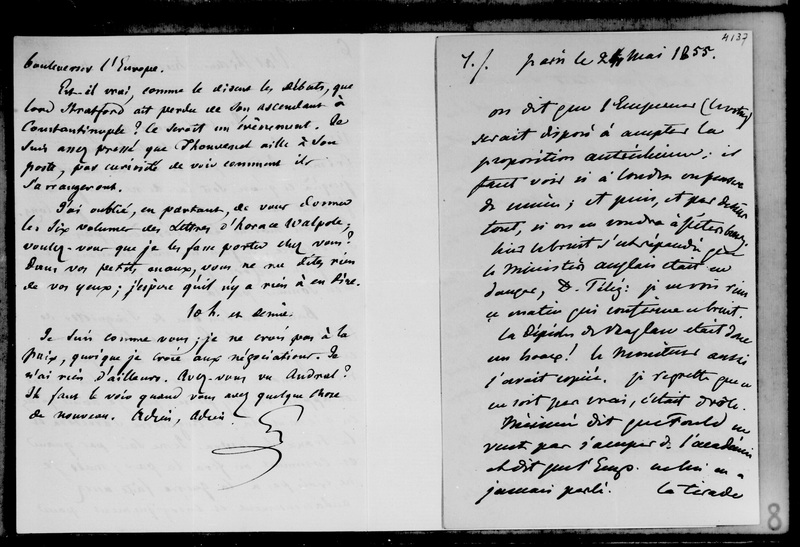 bouleverser l'Europe.
Est-il vrai, comme le disent les débats, que
lord Stratford ait perdu de son ascendant à
Constantinople? Ce seroit un évènement. Je
suis assez pressé que Thouvenel aille à son
poste, par curiosité de voir comment ils
s'arrangeront.
J'ai oublié, en partant, de vous donner
les six volumes des lettres d'Horace Walpole;
voulez-vous que je les fasse porter chez vous?
Dans vos petits maux, vous ne me dites rien
de vos yeux; j'espère qu'il n'y a rien à en dire.
10 h. et demie.
Je suis comme vous; je ne crois pas à la
paix, quoique je croie aux négociations. Je
n'ai rien d'ailleurs. Avez-vous vu Andral?
Il faut le voir quand vous avez quelque chose
de nouveau. Adieu, Adieu.
4137
7./. paris le 24 Mai 1855.
on dit que l'Empereur
serait disposé à accepter la
proposition autrichienne; il
faut voir si à Londres on pensera
de même; et puis, et par dessus
tout, si on en voudra à Pétersbourg.
hier le bruit s'est répandu que
le Ministère anglais était en
danger, D. Télég: je ne vois rien
ce matin qui confirme ce bruit.
la dépêche de Raglan était donc
un hoax! le moniteur aussi
l'avait copiée. je regrette que ce
ne soit pas vrai, c'était drôle.
Mérimée dit que Fould ne
veut pas s'occuper de l'académie
et dit que l'Emp. ne lui en a
jamais parlé. la tirade
8